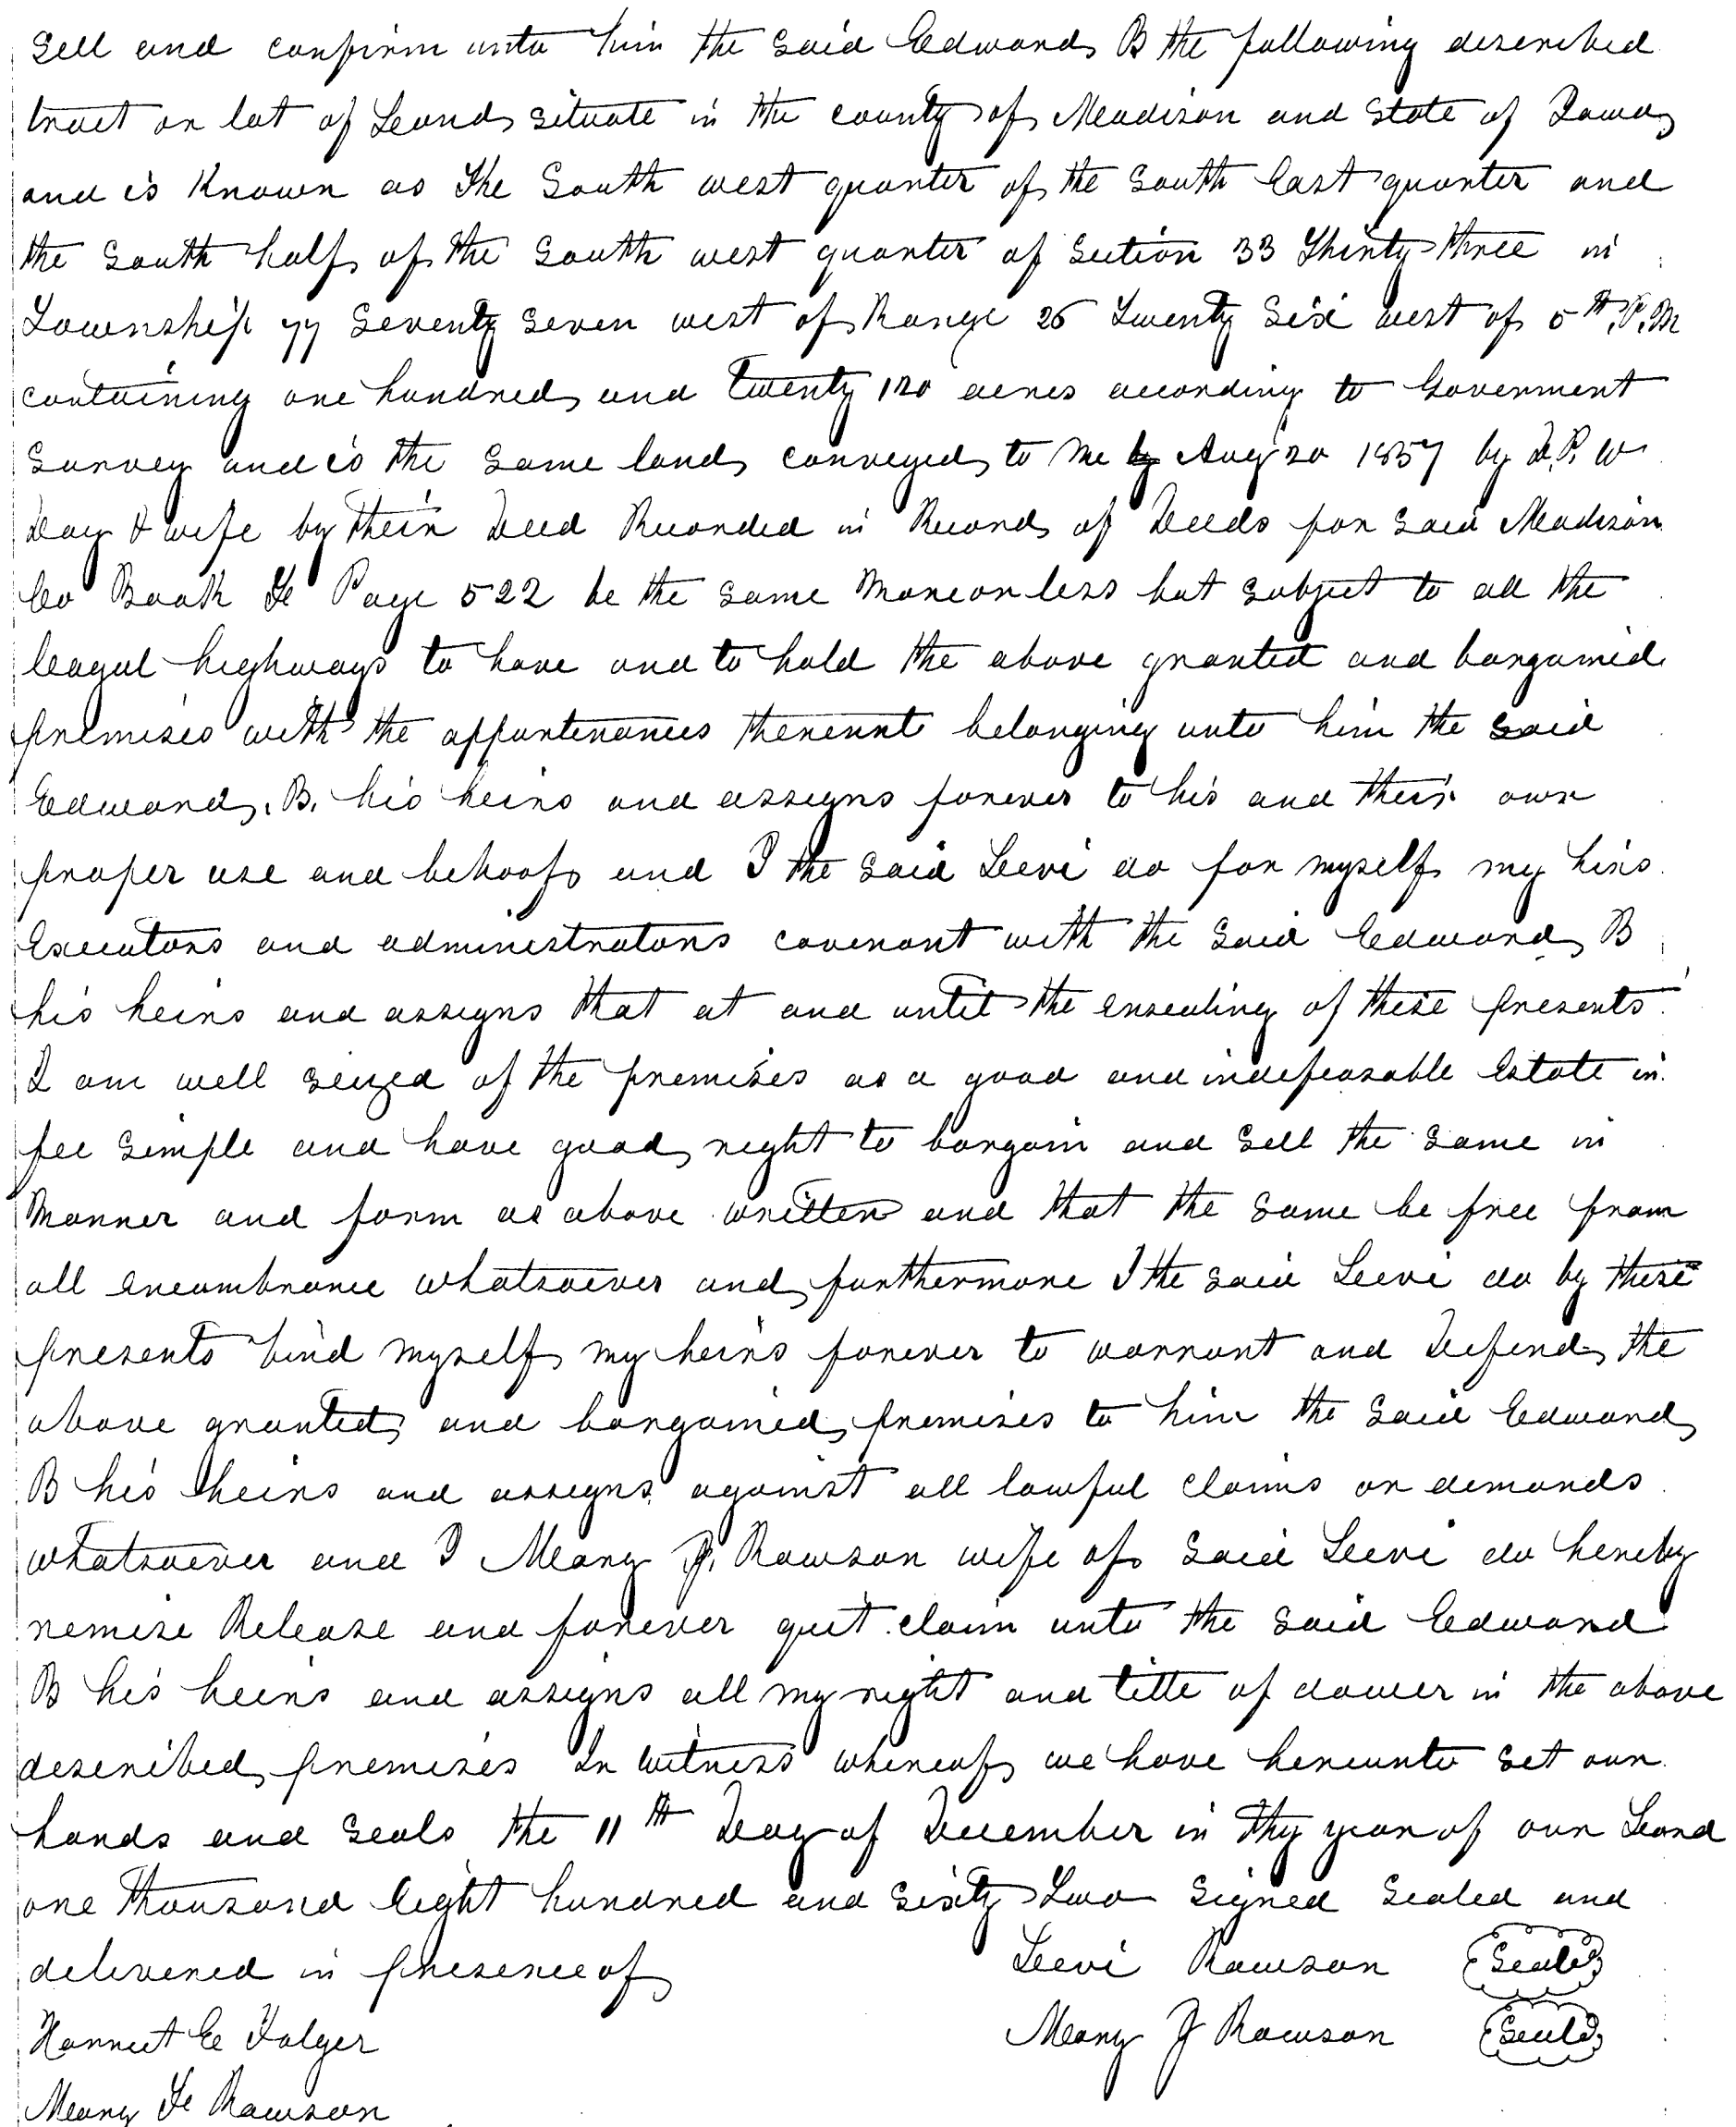 Sell and confirm unto him the said Edward B the following described
tract or lot of Land situate in the county of Madison and State of Iowa
and is Known as The South west quarter of the South East quarter and
the South half of the South west quarter of Section 33 Thirty three in
Township 77 Seventy Seven west of Range 26 Twenty Six west of 5th P.M
containing one hundred and Twenty 120 acres according to Goverment
Survey and is the Same land conveyed to me by Aug 20 1857 by D.P. W
Day & wife by their Deed Recorded in Record of Deeds for Said Madison
Co Book Page 522 be the Same More or less but Subject to all the
leagal highways to have and to hold the above granted and bargained
premises with the appurtenances thereunto belonging unto him the Said
Edward. B. his heirs and assigns forever to his and their own
proper use and behoof and I the Said Levi do for myself my hirs
Executors and administrators covenant with the Said Edward B
his heirs and assigns that at and until the ensealing of these presents
I am well Seized of the premises as a good and indefeasable Estate in
fee Simple and have good right to bargain and Sell the Same in
Manner and form as above written and that the Same be free from
all Encumbrance whatsoever and furthermore I the Said Levi do by these
presents bind myself my heirs forever to warrant and Defend the
above granted and bargained premises to him the Said Edward
B his heirs and assigns against all lawful Claims or demands
whatsoever and I Mary J. Rawson wife of Said Levi do hereby
remise Release and forever quit claim unto the Said Edward
B his heirs and assigns all my right and title of dower in the above
described premises In Witness whereof we have hereunto Set our
hands and Seals the 11th Day of December in Thy year of our Lord
one Thousand Eight hundred and Sixty Two Signed Sealed and
delivered in presence of Levi Rawson Seald
Harriet E Folger Mary J Rawson Seald
Mary Rawson